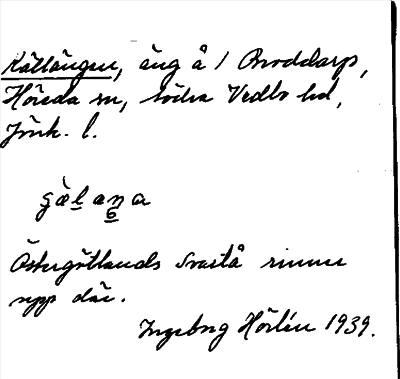 Källängen, äng å 1 Broddarp,
Höreda sn, södra Vedbo hd,
Jönk. l.
Östergötlands Svartå rinner
upp där.
Ingeborg Hörlén 1939.